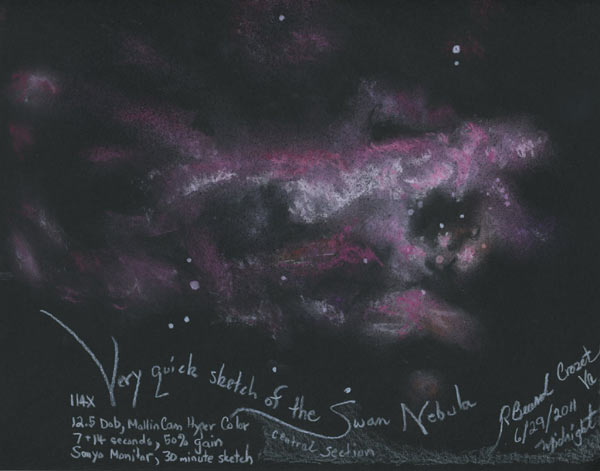 Very quick sketch of the Swan Nebula
central section
114X
12.5 Dob, MallinCam Hyper Color
7 + 14 seconds, 50% gain
Sanyo Monitor, 30 minute sketch
Crozet
Va
6/29/2011
Midnight